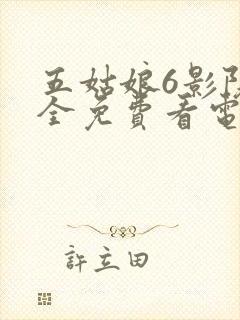 五姑娘6影院
全免費看電
許立田